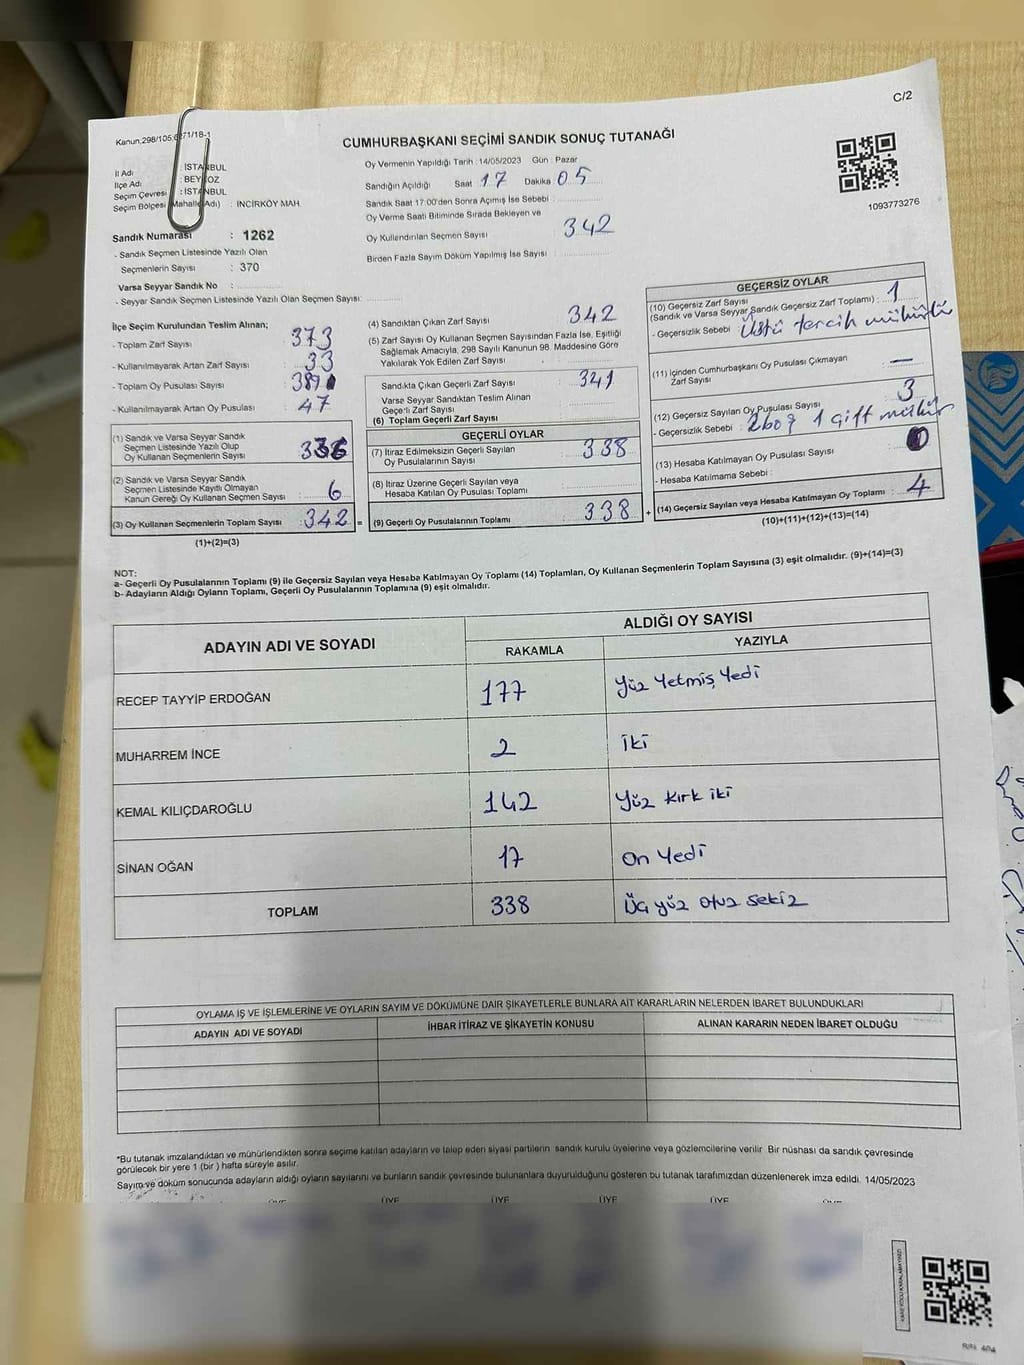 C/2
Kanun:298/105;6271/18-1
CUMHURBAŞKANI SEÇİMİ SANDIK SONUÇ TUTANAĞI
İl Adı : İSTANBUL
İlçe Adı : BEYKOZ
Seçim Çevresi : İSTANBUL
Seçim Bölgesi (Mahalle Adı) : INCİRKÖY MAH.
Sandık Numarası : 1262
- Sandık Seçmen Listesinde Yazılı Olan
Seçmenlerin Sayısı : 370
Varsa Seyyar Sandık No :
- Seyyar Sandık Seçmen Listesinde Yazılı Olan Seçmen Sayısı:
Oy Vermenin Yapıldığı Tarih :14/05/2023 Gün : Pazar
Sandığın Açıldığı Saat 17 Dakika 05
Sandık Saat 17:00'den Sonra Açımış İse Sebebi :
Oy Verme Saati Bitiminde Sırada Bekleyen ve
Oy Kullendırılan Seçmen Sayısı 342
Birden Fazla Sayım Döküm Yapılmış İse Sayısı :
1093773276
İlçe Seçim Kurulundan Teslim Alınan;
- Toplam Zarf Sayısı : 373
- Kullanılmayarak Artan Zarf Sayısı : 33
- Toplam Oy Pusulası Sayısı : 389
- Kullanılmayarak Artan Oy Pusulası : 47
(1) Sandık ve Varsa Seyyar Sandık
Seçmen Listesinde Yazılı Olup
Oy Kullanan Seçmenlerin Sayısı : 336
(2) Sandık ve Varsa Seyyar Sandık
Seçmen Listesinde Kayıtlı Olmayan
Kanun Gereği Oy Kullanan Seçmen Sayısı : 6
(3) Oy Kullanan Seçmenlerin Toplam Sayısı : 342 =
(1)+(2)=(3)
(4) Sandıktan Çıkan Zarf Sayısı 342
(5) Zarf Sayısı Oy Kullanan Seçmen Sayısından Fazla İse, Eşitliği
Sağlamak Amacıyla, 298 Sayılı Kanunun 98. Maddesine Göre
Yakılarak Yok Edilen Zarf Sayısı :
Sandıkta Çıkan Geçerli Zarf Sayısı : 341
Varse Seyyar Sandıktan Teslim Alınan
Geçerli Zarf Sayısı
(6) Toplam Geçerli Zarf Sayısı
GEÇERLİ OYLAR
(7) İtiraz Edilmeksizin Geçerli Sayılan
Oy Pusulalarının Sayısı : 338
(8) İtiraz Üzerine Geçerli Sayılan veya
Hesaba Katılan Oy Pusulası Toplamı
(9) Geçerli Oy Pusulalarının Toplamı : 338 +
GEÇERSİZ OYLAR
(10) Geçersiz Zarf Sayısı
(Sandık ve Varsa Seyyar Sandık Geçersiz Zarf Toplamı) : 1
- Geçersizlik Sebebi : Üstü tercih mühürlü
(11) İçinden Cumhurbaşkanı Oy Pusulası Çıkmayan
Zarf Sayısı : —
(12) Geçersiz Sayılan Oy Pusulası Sayısı : 3
- Geçersizlik Sebebi : 2 boş 1 çift mühür
(13) Hesaba Katılmayan Oy Pusulası Sayısı : 0
- Hesaba Katılmama Sebebi :
(14) Geçersiz Sayılan veya Hesaba Katılmayan Oy Toplamı : 4
(10)+(11)+(12)+(13)=(14)
NOT:
a- Geçerli Oy Pusulalarının Toplamı (9) ile Geçersiz Sayılan veya Hesaba Katılmayan Oy Toplamı (14) Toplamları, Oy Kullanan Seçmenlerin Toplam Sayısına (3) eşit olmalıdır. (9)+(14)=(3)
b- Adayların Aldığı Oyların Toplamı, Geçerli Oy Pusulalarının Toplamına (9) eşit olmalıdır.
ADAYIN ADI VE SOYADI
ALDIĞI OY SAYISI
RAKAMLA YAZIYLA
RECEP TAYYİP ERDOĞAN 177 Yüz Yetmiş Yedi
MUHARREM İNCE 2 İki
KEMAL KILIÇDAROĞLU 142 Yüz kırk iki
SİNAN OĞAN 17 On Yedi
TOPLAM 338 Üç yüz otuz sekiz
OYLAMA İŞ VE İŞLEMLERİNE VE OYLARIN SAYIM VE DÖKÜMÜNE DAİR ŞİKAYETLERLE BUNLARA AİT KARARLARIN NELERDEN İBARET BULUNDUKLARI
ADAYIN ADI VE SOYADI İHBAR İTİRAZ VE ŞİKAYETİN KONUSU ALINAN KARARIN NEDEN İBARET OLDUĞU
*Bu tutanak imzalandıktan ve mühürlendikten sonra seçime katılan adayların ve talep eden siyasi partilerin sandık kurulu üyelerine veya gözlemcilerine verilir Bir nüshası da sandık çevresinde
görülecek bir yere 1 (bir ) hafta süreyle asılır.
Sayım ve döküm sonucunda adayların aldığı oyların sayılarını ve bunların sandık çevresinde bulunanlara duyurulduğunu gösteren bu tutanak tarafımızdan düzenlenerek imza edildi. 14/05/2023
ÜYE ÜYE ÜYE ÜYE ÜYE ÜYE